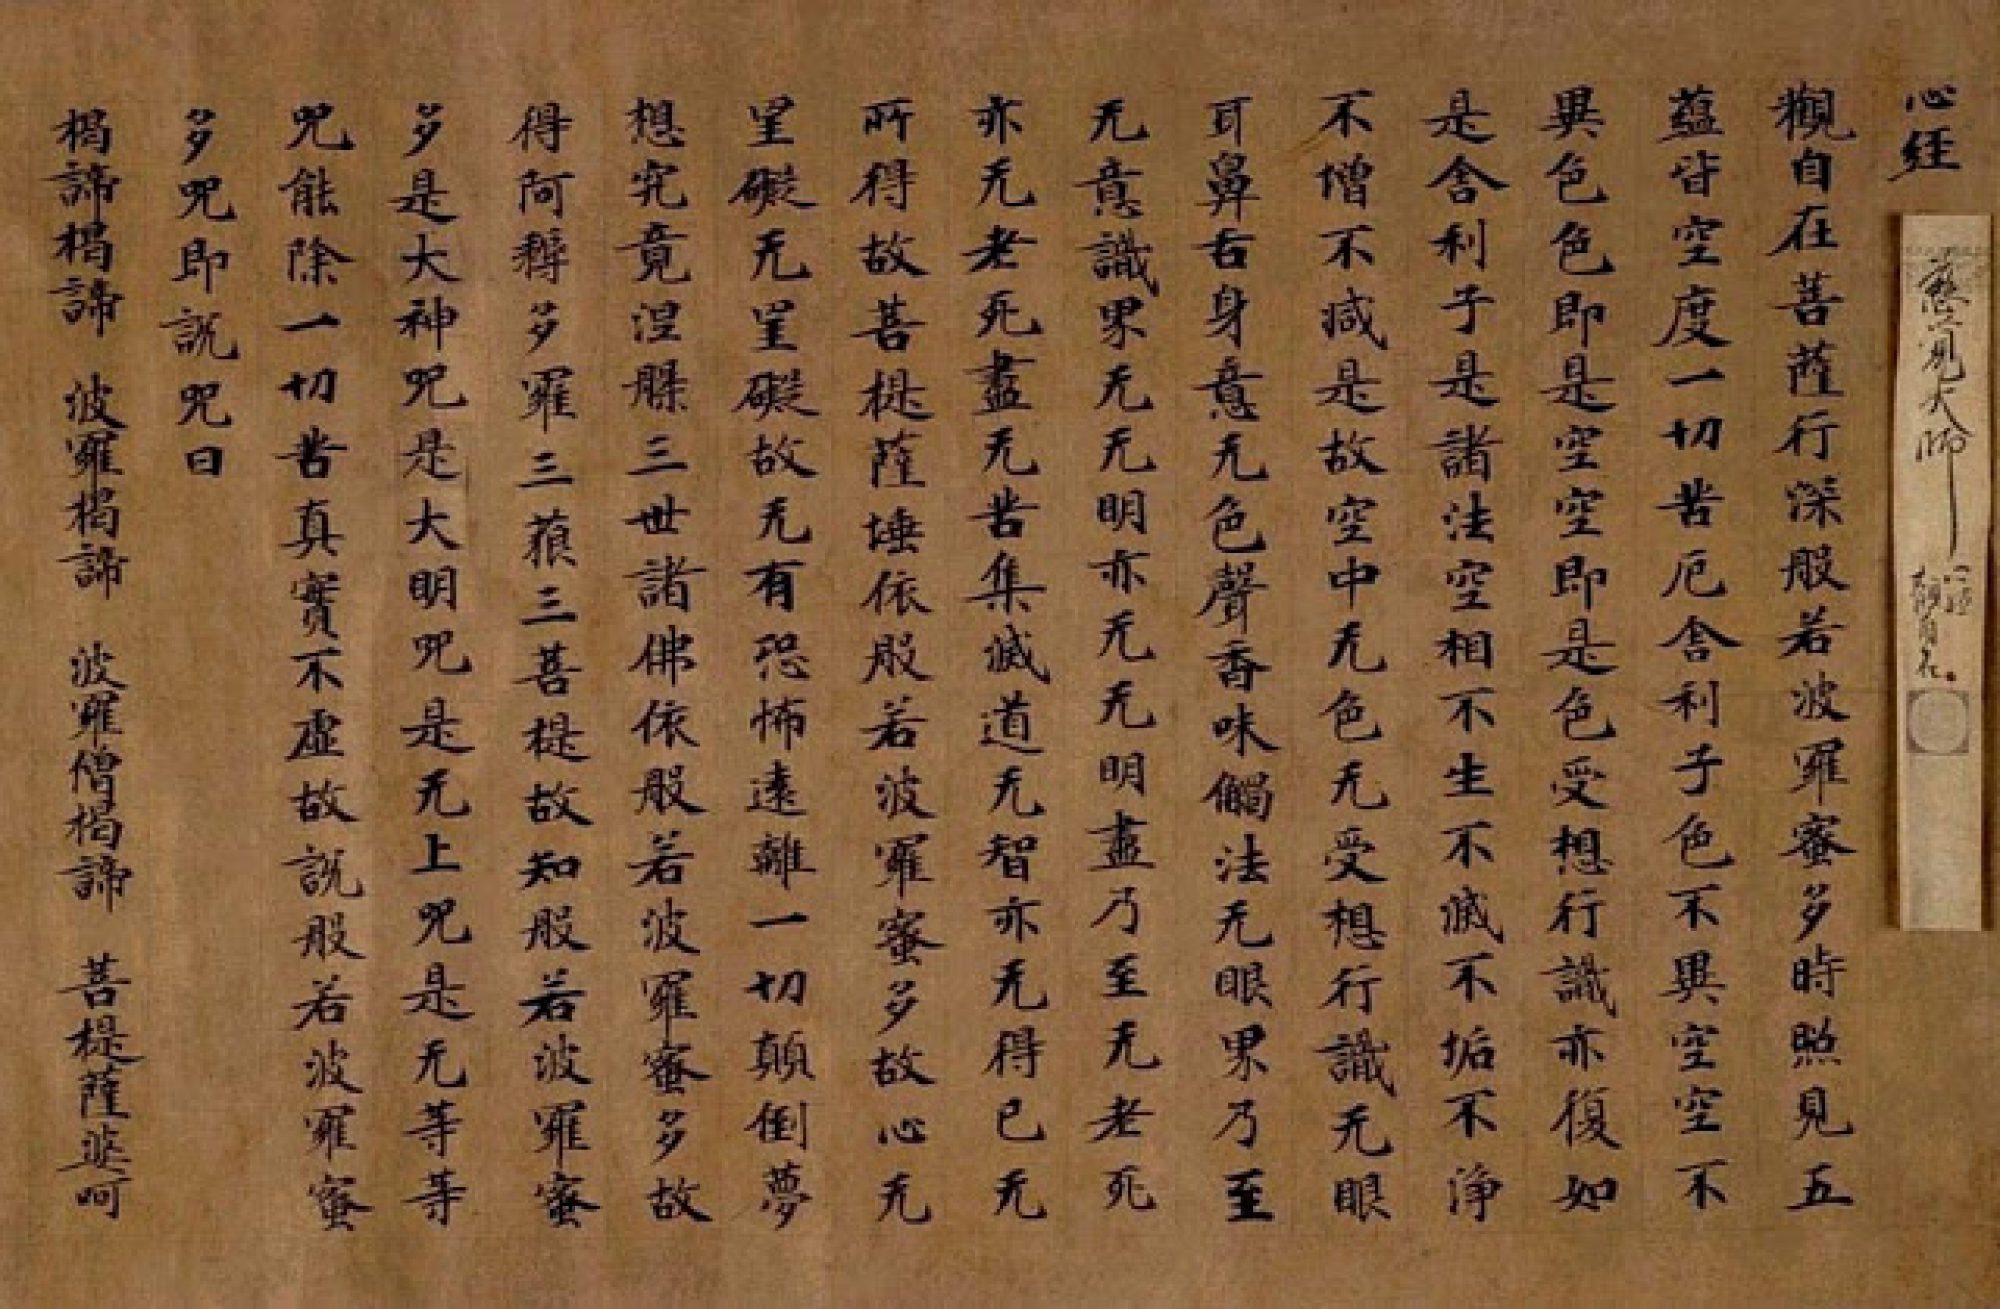 心経
慈覚大師
心経
観自在。
觀自在菩薩行深般若波羅蜜多時照見五
蘊皆空度一切苦厄舍利子色不異空空不
異色色即是空空即是色受想行識亦復如
是舍利子是諸法空相不生不滅不垢不淨
不憎不減是故空中无色无受想行識无眼
耳鼻舌身意无色聲香味觸法无眼界乃至
无意識界无无明亦无无明盡乃至无老死
亦无老死盡无苦集滅道无智亦无得已无
所得故菩提薩埵依般若波羅蜜多故心无
罣礙无罣礙故无有恐怖遠離一切顛倒夢
想究竟涅槃三世諸佛依般若波羅蜜多故
得阿耨多羅三藐三菩提故知般若波羅蜜
多是大神咒是大明咒是无上咒是无等等
咒能除一切苦真實不虛故說般若波羅蜜
多咒即說咒曰
揭諦揭諦 波羅揭諦 波羅僧揭諦 菩提薩婆呵